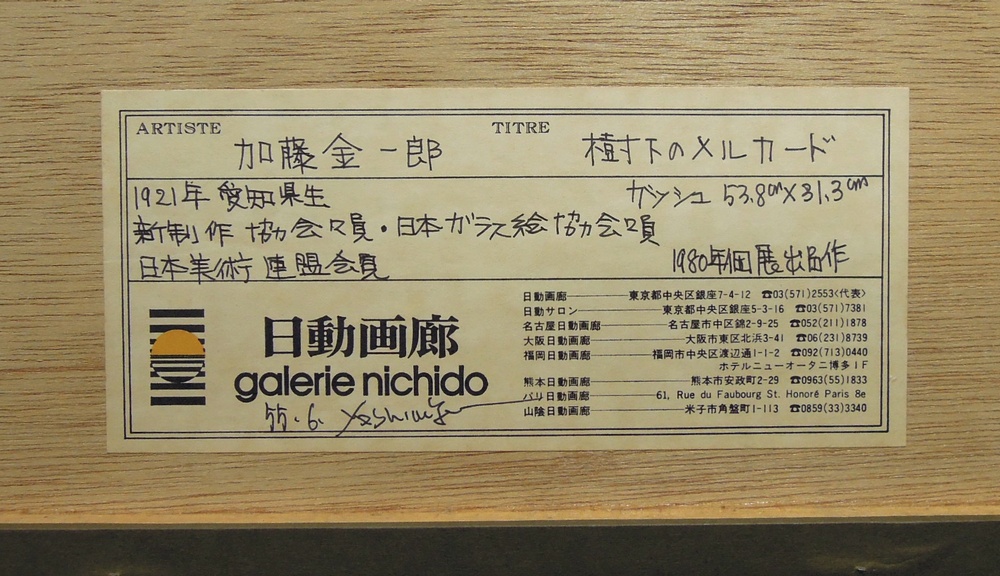 ARTISTE 加藤金一郎 TITRE 樹下のメルカード
1921年 愛知県生 ガッシュ 53.8cm×31.3cm
新制作協会々員・日本ガラス絵協会々員
日本美術連盟会員 1980年個展出品作
日動画廊
galerie nichido
55.6.
日動画廊 東京都中央区銀座7-4-12 ☎03(571)2553<代表>
日動サロン 東京都中央区銀座5-3-16 ☎03(571)7381
名古屋日動画廊 名古屋市中区錦2-9-25 ☎052(211)1878
大阪日動画廊 大阪市東区北浜3-41 ☎06(231)8739
福岡日動画廊 福岡市中央区渡辺通1-1-2 ☎092(713)0440
ホテルニューオータニ博多1F
熊本日動画廊 熊本市安政町2-29 ☎0963(55)1833
パリ日動画廊 61, Rue du Faubourg St. Honoré Paris 8e
山陰日動画廊 米子市角盤町1-113 ☎0859(33)3340